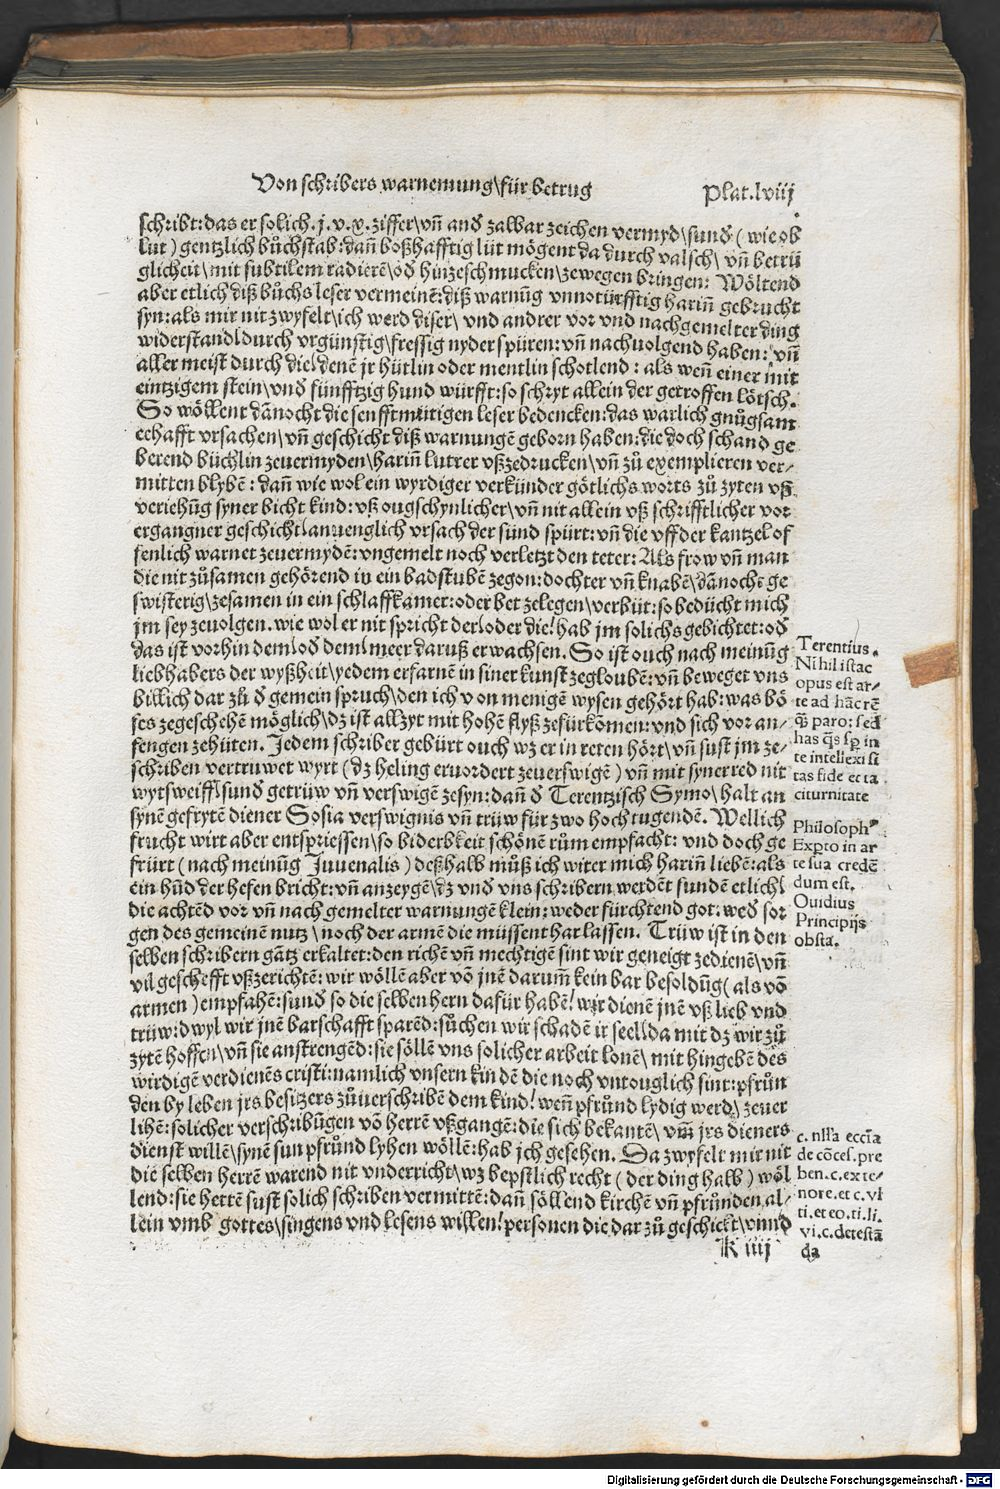 Von schribers warnemung\für betrug
Plat.lviij
schribt:das er solich.j.v.x.ziffer\vn̄ and̄ zalbar zeichen vermyd\sund̄ (wie ob
lut) gentzlich bůchstab:dan̄ boßhafftig lüt mögent da durch valsch\ vn̄ betrü
glicheit\mit subtilem radierē\od̄ hinzeschmucken\zewegen bringen: Wöltend
aber etlich diß bůchs leser vermeinē:diß warnūg vnnotürfftig harin̄ gebrucht
syn:als mir nit zwyfelt\ich werd diser\ vnd andrer vor vnd nachgemelter ding
widerstand\durch vrgünstig\fressig nyder spüren:vn̄ nachuolgend haben: vn̄
aller meist durch die\denē jr hütlin oder mentlin schotlend: als wen̄ einer mit
eintzigem stein\vnd̄ fünfftzig hund würfft:so schryt allein der getroffen lötsch.
So wöllent dānocht die senfftmütigen leser bedencken:das warlich gnůgsam
eehafft vrsachen\vn̄ geschicht diß warnungē geborn haben:die doch schand ge
berend büchlin zeuermyden\harin̄ lutrer vßzedrucken\vn̄ zů exemplieren ver-
mitten blybē: dan̄ wie wol ein wyrdiger verkünder götlichs worts zů zyten vß
veriehūg syner bicht kind:vß ougschynlicher\vn̄ nit allein vß schrifftlicher vor
ergangner geschicht\anuenglich vrsach der sünd spürt:vn̄ die vff der kantzel of
fenlich warnet zeuermydē:vngemelt noch verletzt den teter: Als frow vn̄ man
die nit zůsamen gehörend in ein badstubē zegon:dochter vn̄ knabē\dānochē ge
swisterig\zesamen in ein schlaffkamer:oder bet zelegen\verbüt:so bedücht mich
jm sey zeuolgen. wie wol er nit spricht der\oder die! hab jm solichs gebichtet:od̄
das ist vorhin dem\od̄ dem\ meer daruß erwachsen. So ist ouch nach meinūg
liebhabers der wyßheit\yedem erfarnē in siner kunst zegloubē:vn̄ beweget vns
billich dar zů d̄ gemein spruch\den ich von menigē wysen gehört hab:was bö
ses zegeschehē möglich\dz ist allzyt mit hohē flyß zefürkōmen:vnd sich vor an-
fengen zehüten. Jedem schriber gebürt ouch wz er in reten hört\vn̄ sust jm ze-
schriben vertruwet wyrt (dz heling eruordert zeuerswigē) vn̄ mit syner red nit
wytsweiff\sund̄ getrüw vn̄ verswigē zesyn:dan̄ d̄ Terentzisch Symo\ halt an
synē gefrytē diener Sosia verswignis vn̄ trüw für zwo hoch tugendē. Wellich
frucht wirt aber entspriessen\so biderbkeit schönē rům empfacht: vnd doch ge
frürt (nach meinūg Juuenalis) deßhalb můß ich witer mich harin̄ liebē:als
ein hūd der hefen bricht:vn̄ anzeygē\dz vnd̄ vns schribern werdēt fundē etlich\
die achtēd vor vn̄ nach gemelter warnungē klein:weder fürchtend got.wed̄ sor
gen des gemeinē nutz\noch der armē die müssent har lassen. Trüw ist in den
selben schribern gātz erkaltet:den richē vn̄ mechtigē sint wir geneigt zedienē\vn̄
vil geschefft vßzerichtē:wir wöllē aber vō jnē darum̄ kein bar besoldūg (als vō
armen) empfahē:sund̄ so die selben hern dafür habē! wir dienē jnē vß lieb vnd
trüw:dwyl wir jnē barschafft sparēd:sůchen wir schadē ir seel\da mit dz wir zů
zytē hoffen\vn̄ sie anstrengēd:sie söllē vns solicher arbeit lonē\ mit hingebē des
wirdigē verdienēs cristi:namlich vnsern kindē die noch vntouglich sint:pfrůn
den by leben jrs besitzers zůuerschribē dem kind! wen̄ pfrůnd lydig werd\ zeuer
lihē:solicher verschribūgen vō herrē vßgangē:die sich bekantē\ vm̄ jrs dieners
dienst willē\synē sun pfrůnd lyhen wöllē:hab jch gesehen. Da zwyfelt mir nit
die selben herrē warend nit vnderricht\wz bepstlich recht (der ding halb) wöl
lend:sie hettē sust solich schriben vermittē:dan̄ söllend kirchē vn̄ pfrůnden al-
lein vmb gottes\singens vnd lesens willen! personen die dar zů geschickt\vnnd
K iiij
Terentius.
Nihil istac
opus est ar-
te ad hāc rē
q̄ paro: sed
has q̄s sp̄ in
te intellexi si
tas fide et ta
citurnitate
Philosoph⁹
Expto in ar
te sua credē
dum est.
Ouidius
Principijs
obsta.
c. nlła eccīa
de cōces. pre
ben.c.ex te-
nore.et c.vl
ti.et eo.ti.li.
vi.c.detestā
da
Digitalisierung gefördert durch die Deutsche Forschungsgemeinschaft - DFG